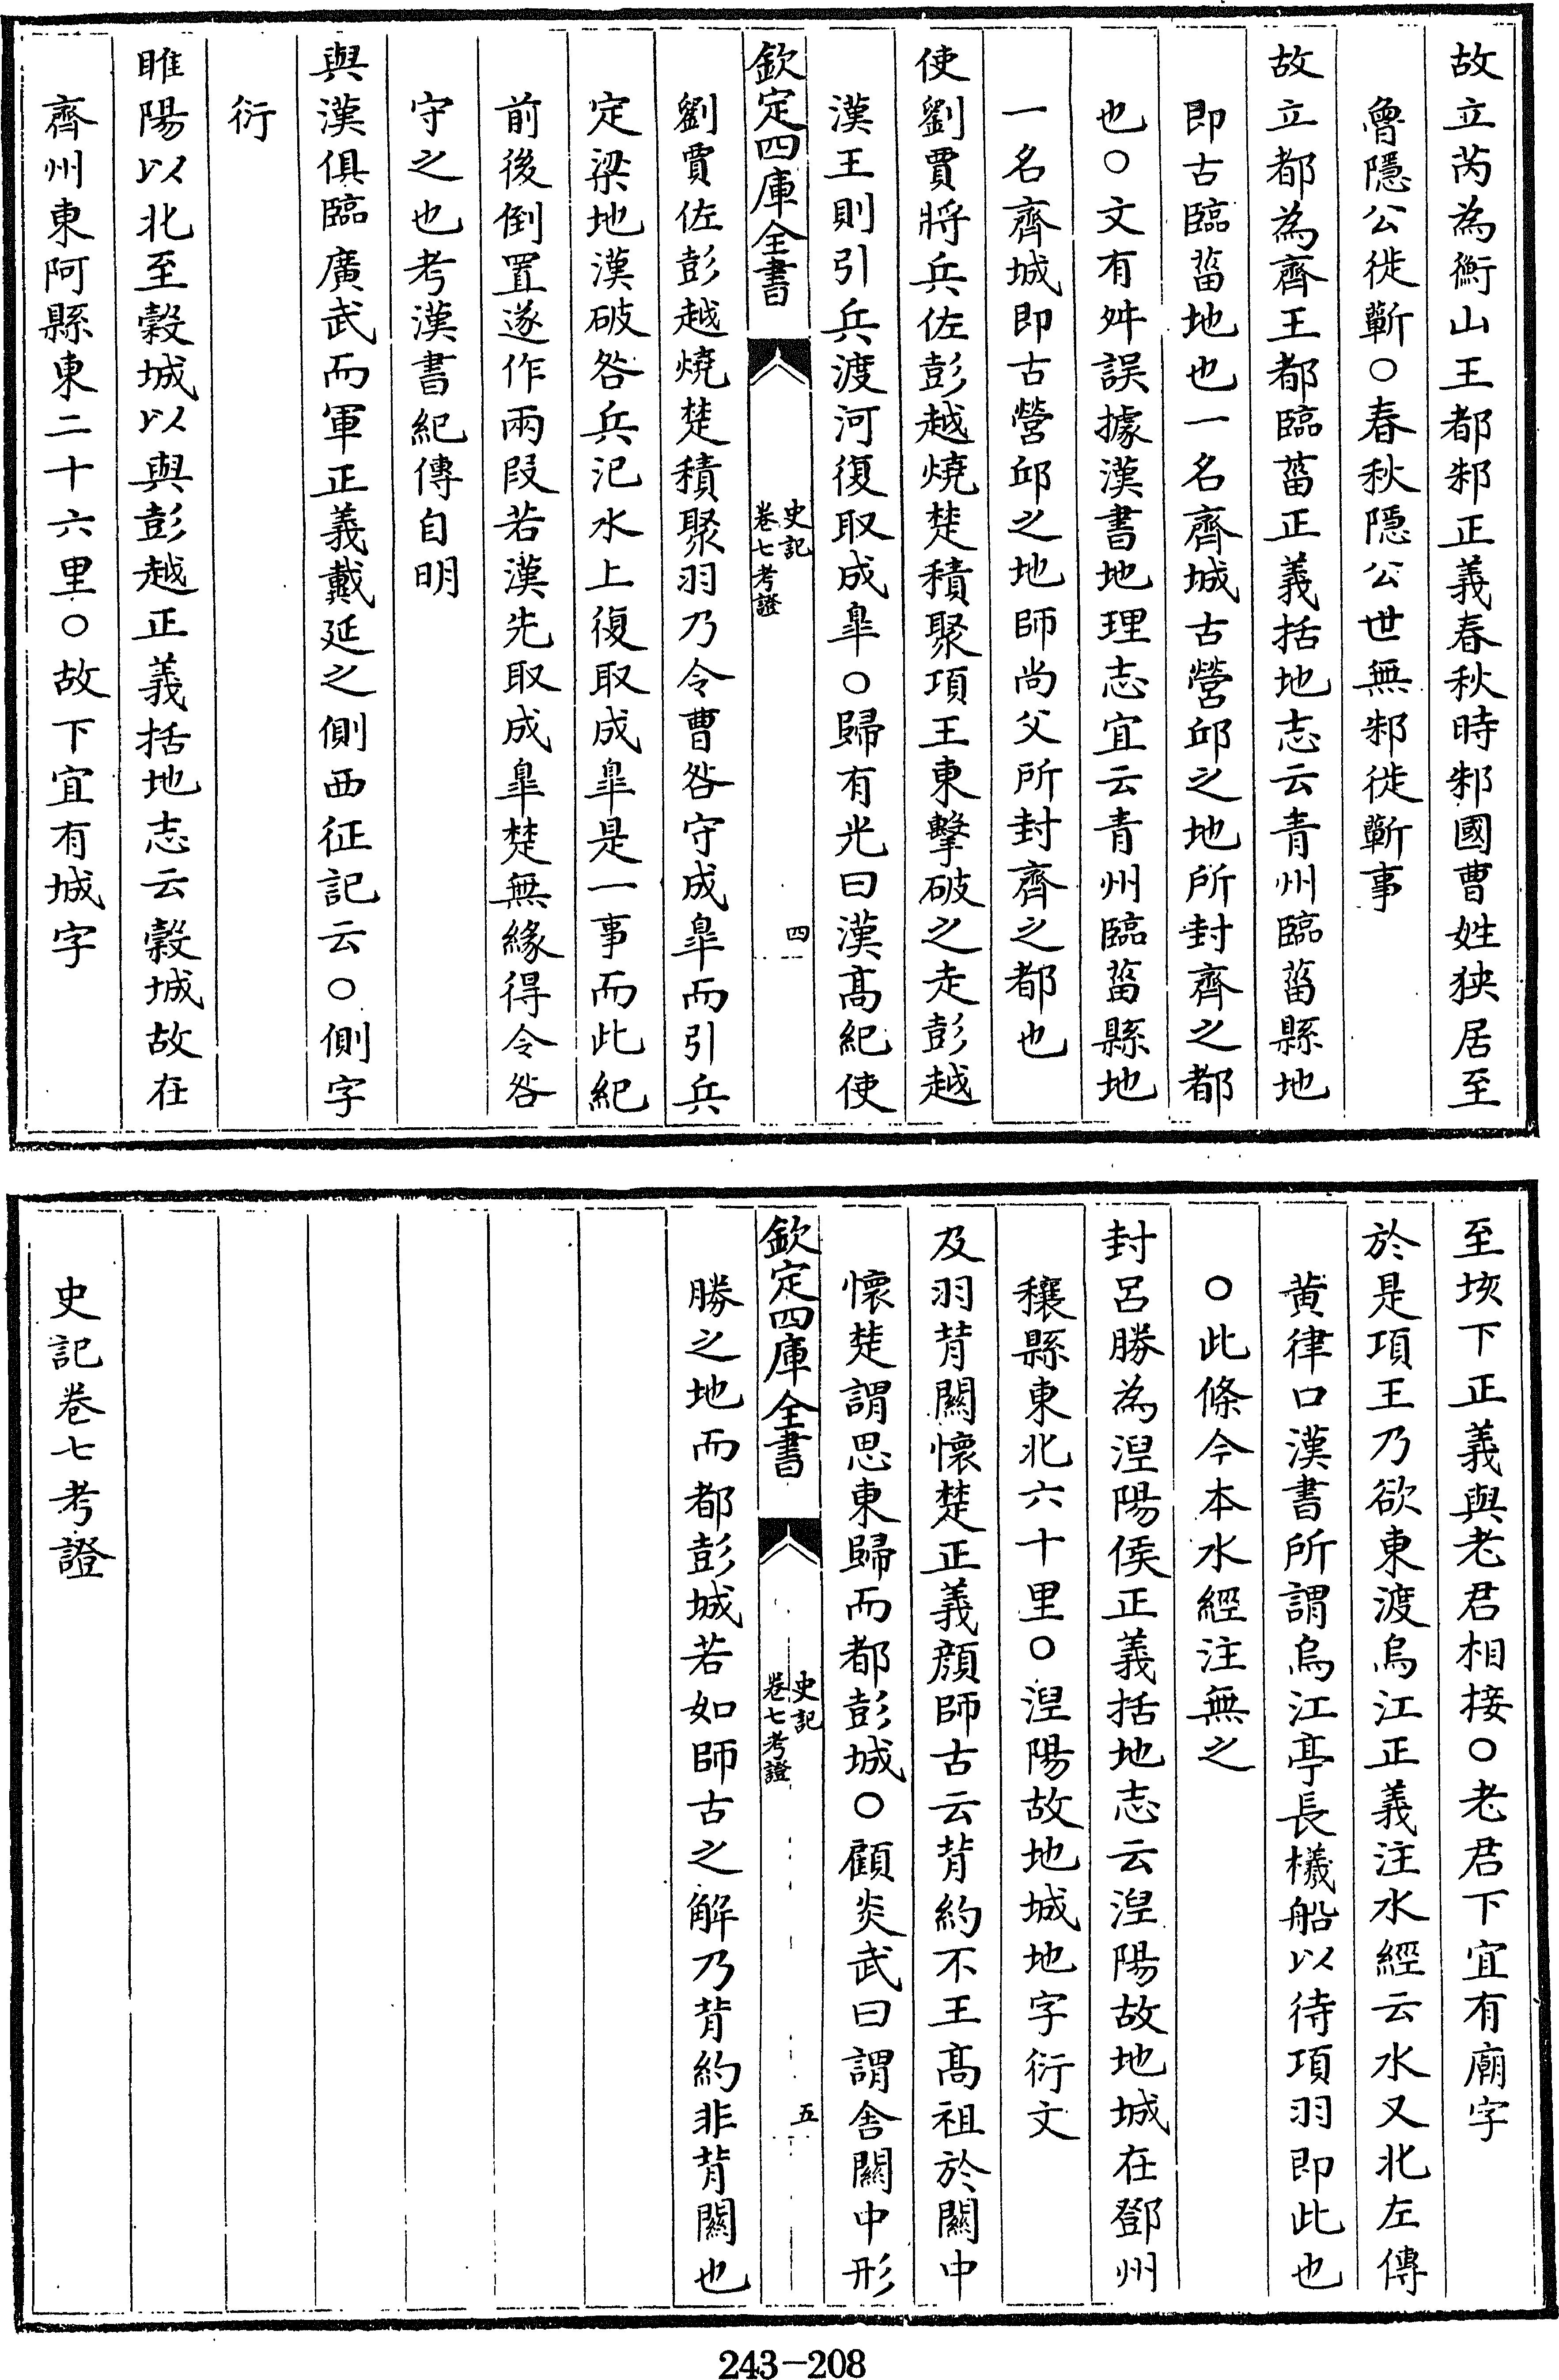 故立芮為衡山王都邾正義春秋時邾國曹姓狹居至
魯隱公徙蘄○春秋隱公世無邾徙蘄事
故立都為齊王都臨菑正義括地志云青州臨菑縣地
即古臨菑地也一名齊城古營邱之地所封齊之都
也○文有舛誤據漢書地理志宜云青州臨菑縣地
一名齊城即古營邱之地師尚父所封齊之都也
使劉賈將兵佐彭越燒楚積聚項王東擊破之走彭越
漢王則引兵渡河復取成臯○歸有光曰漢髙紀使
欽定四庫全書
史記
卷七考證
四
劉賈佐彭越燒楚積聚羽乃令曹咎守成臯而引兵
定梁地漢破咎兵汜水上復取成臯是一事而此紀
前後倒置遂作兩段若漢先取成臯楚無緣得令咎
守之也考漢書紀傳自明
與漢俱臨廣武而軍正義戴延之側西征記云○側字
衍
睢陽以北至榖城以與彭越正義括地志云榖城故在
齊州東阿縣東二十六里○故下宜有城字
至垓下正義與老君相接○老君下宜有廟字
於是項王乃欲東渡烏江正義注水經云水又北左傳
黄律口漢書所謂烏江亭長檥船以待項羽即此也
○此條今本水經注無之
封呂勝為涅陽侯正義括地志云涅陽故地城在鄧州
穰縣東北六十里○涅陽故地城地字衍文
及羽背闗懷楚正義顔師古云背約不王髙祖於闗中
懷楚謂思東歸而都彭城○顧炎武曰謂舍闗中形
欽定四庫全書
史記
卷七考證
五
勝之地而都彭城若如師古之解乃背約非背闗也
史記卷七考證
243-208